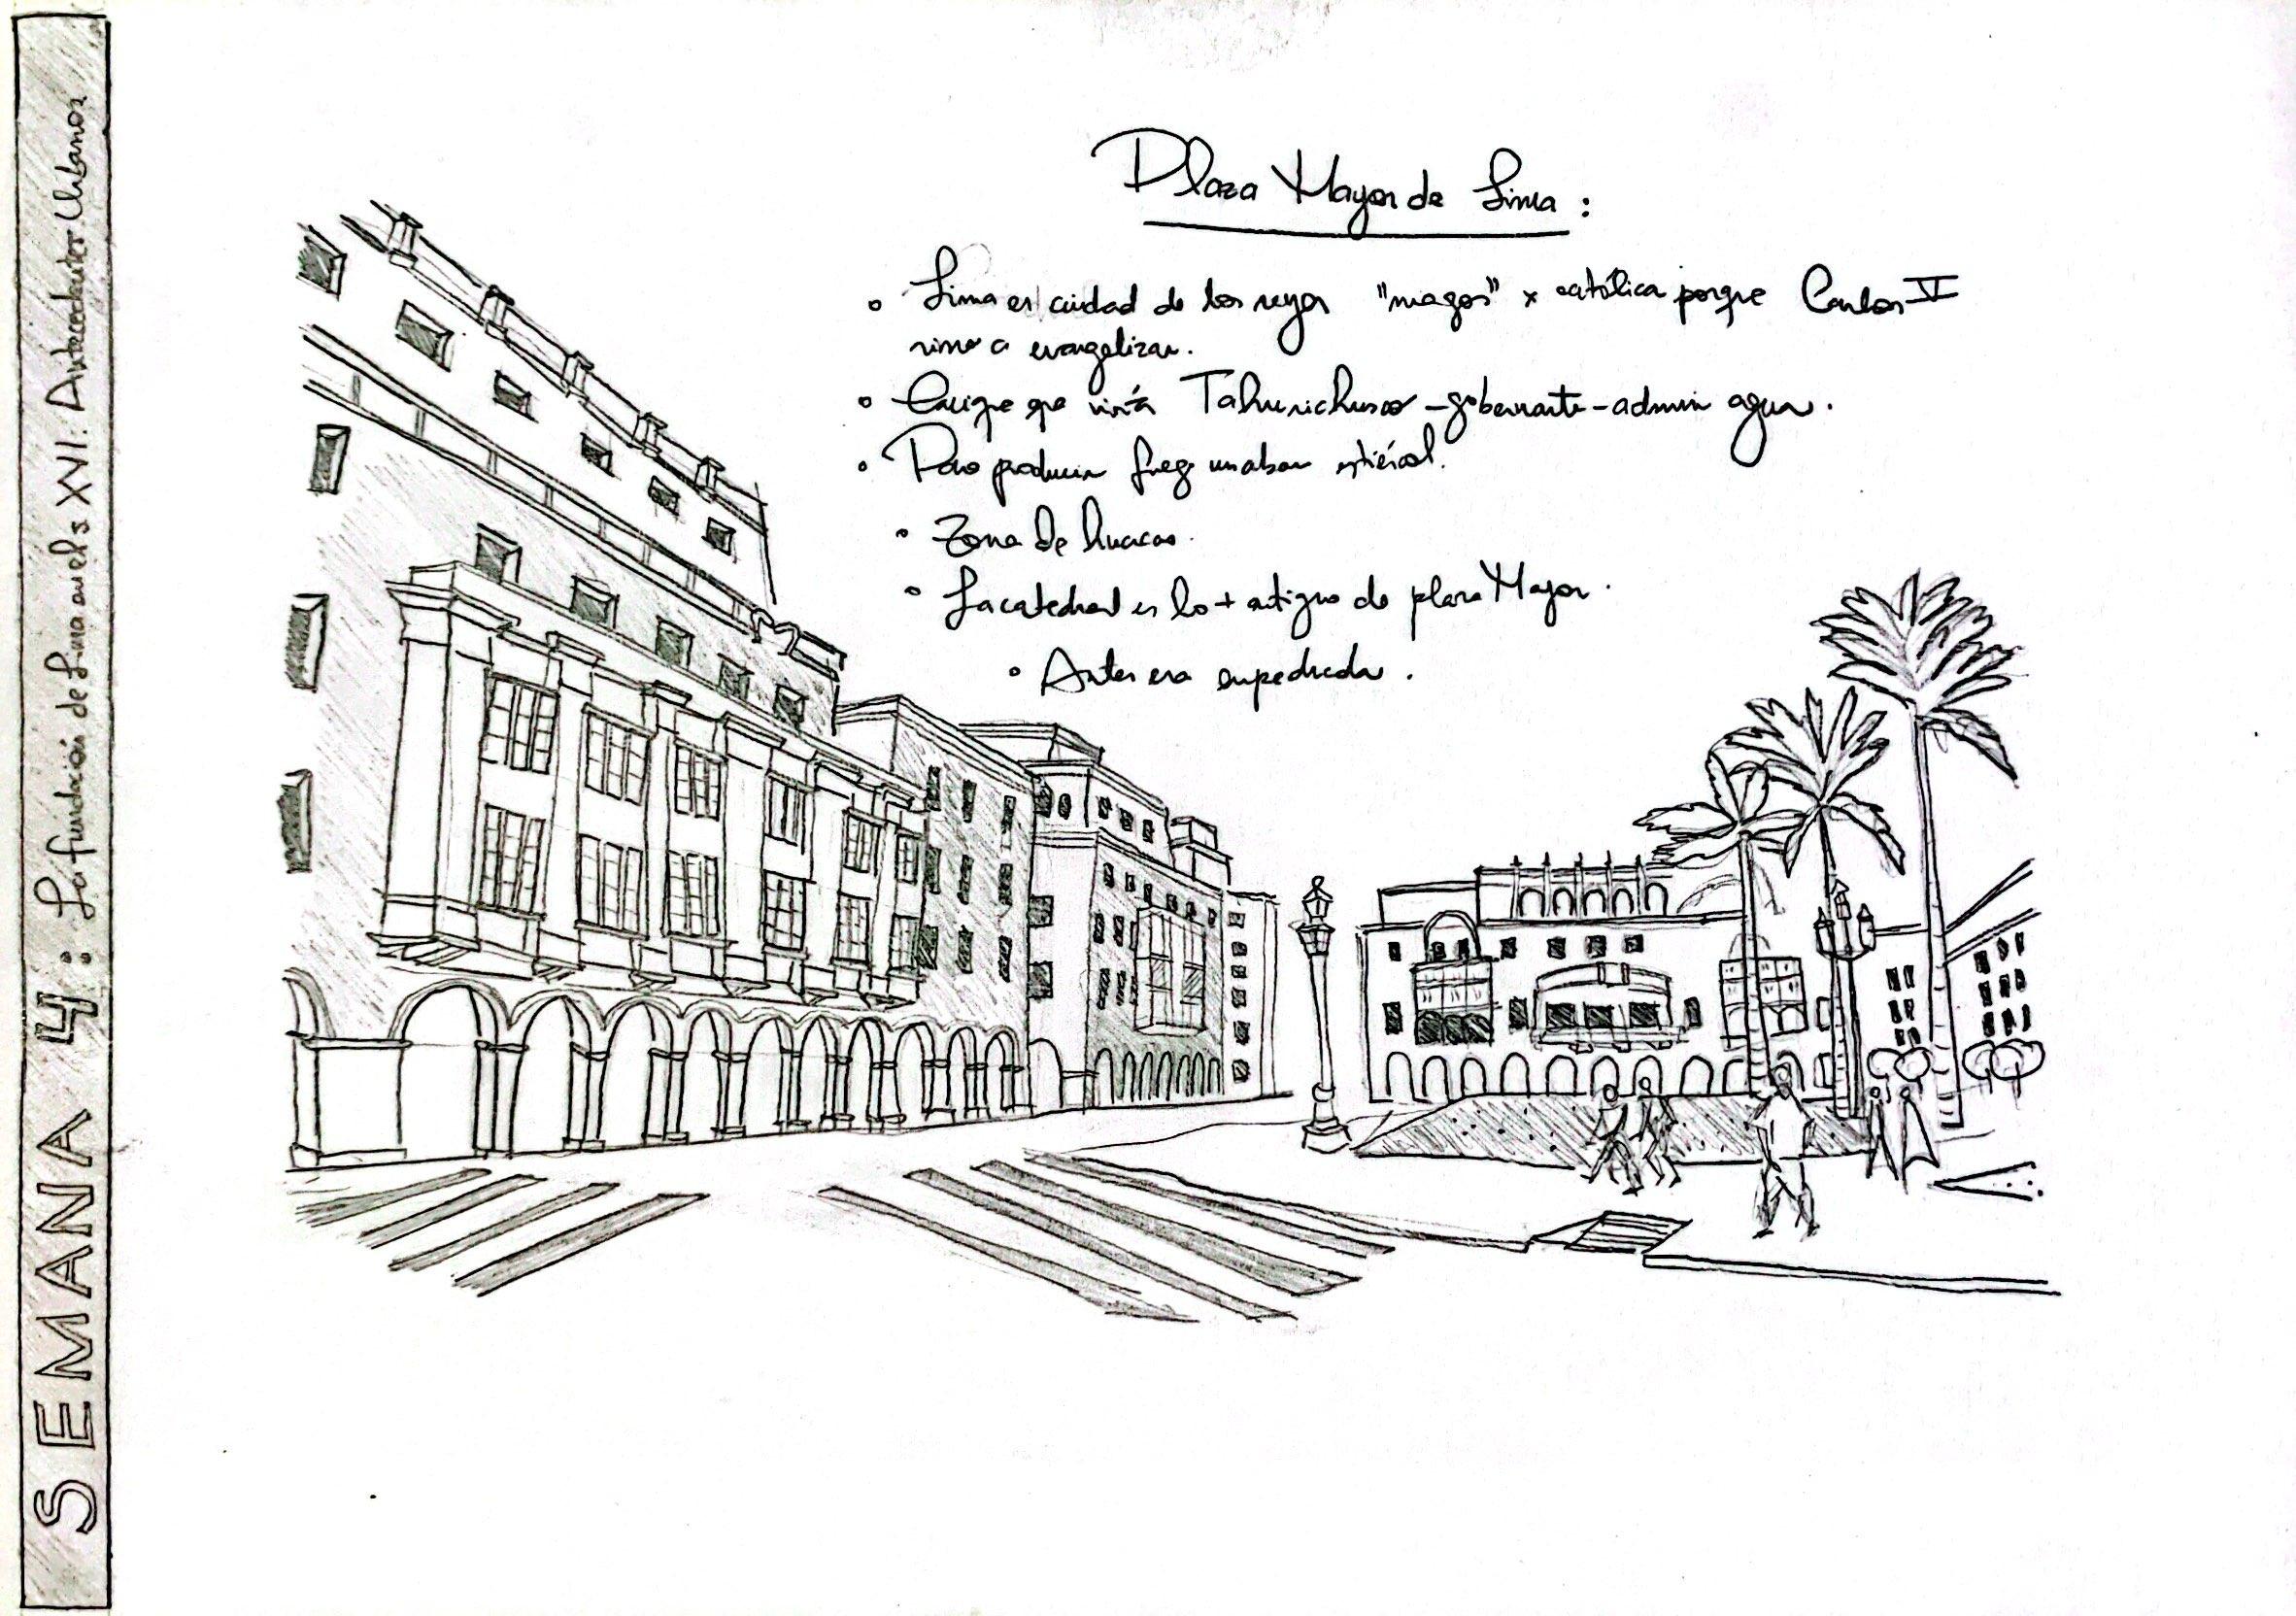 SEMANA 4: La fundación de Lima en el s XVI: Antecedentes Urbanos
Plaza Mayor de Lima:
Lima es ciudad de los reyes "magos" x católica porque Carlos V
vino a evangelizar.
Cacique que vivía - gobernante - admin agua.
Para producir fuego usaban estiércol.
Zona de huacas.
La catedral es lo + antiguo de plaza Mayor.
Antes era empedrada.